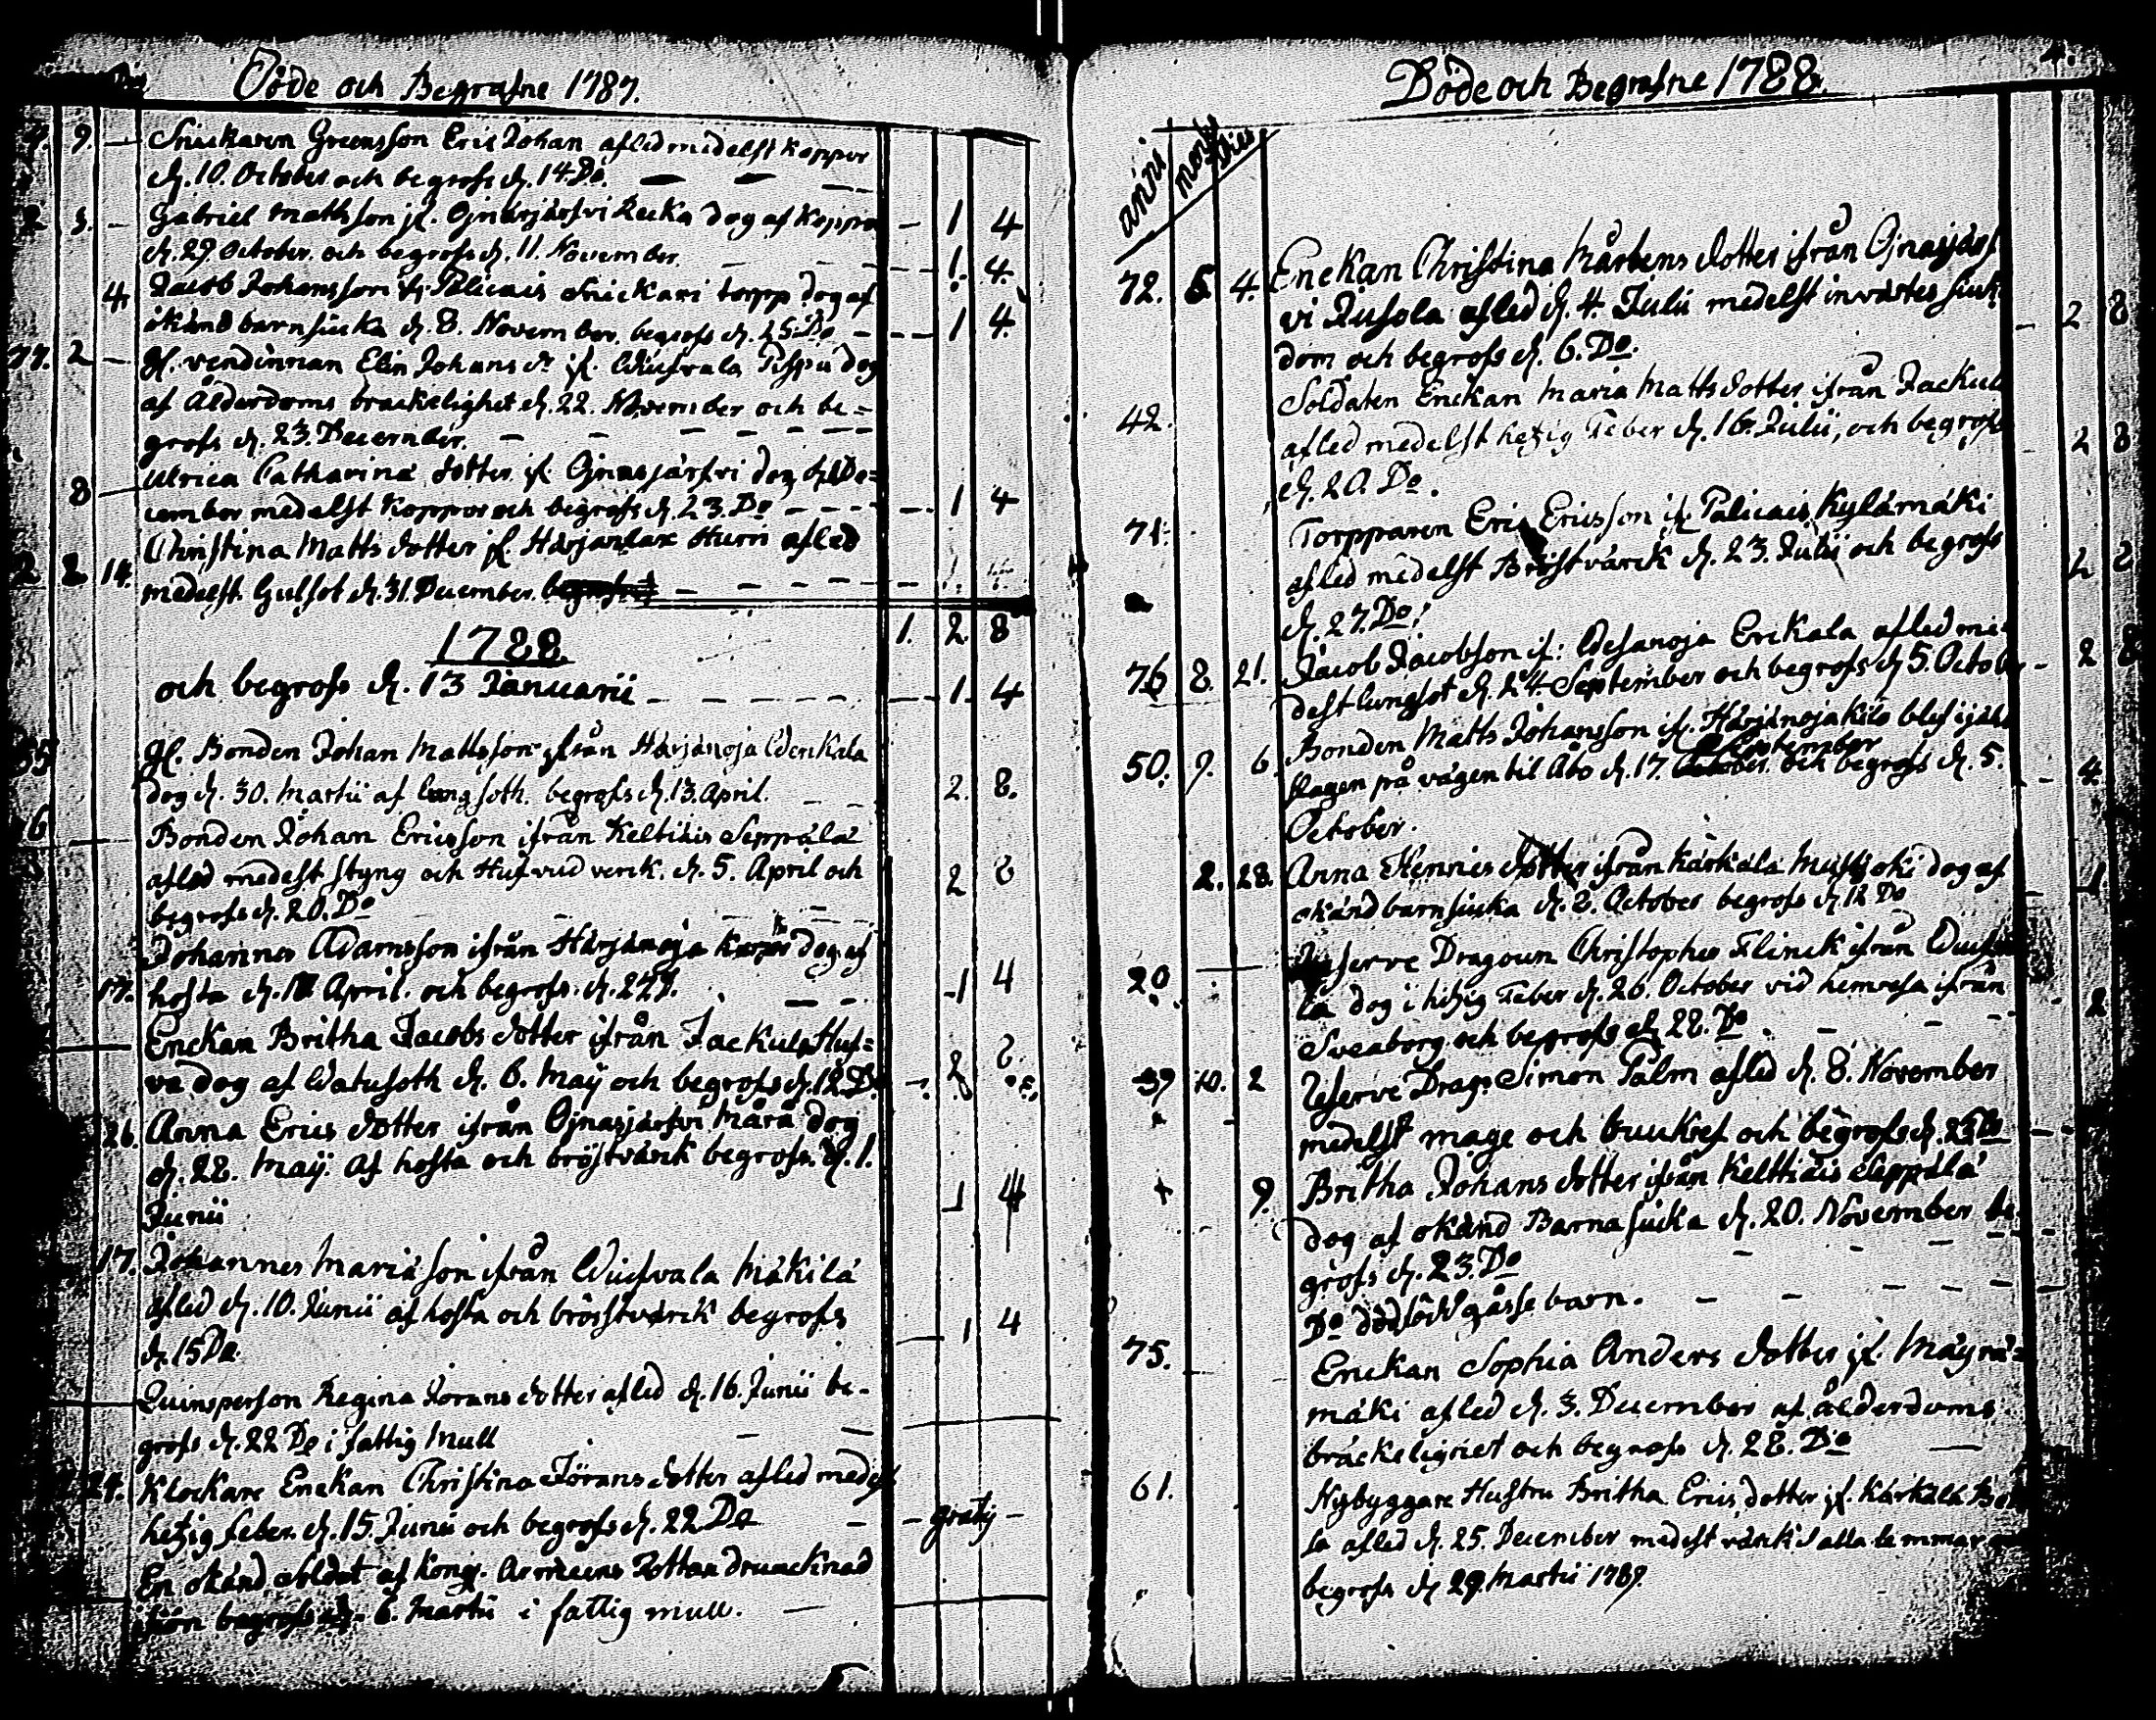 Döde och Begrafne 1787.
4. 9. — Snickaren Greensson Eric Johan afled medelst koppor
d. 10. October och begrofs d. 14 Do. — — —
2 3. — Gabriel Mathsson if. Ojnasjärfvi dog af koppor — 1 4
d. 29 October. och begrofs d. 11. November. — — 1. 4.
4. Jacob Johansson if. Palicais Snickari torpp dog af
okänd barnsiuka d. 8. November. begrofs d. 25. Do — — 1 4.
77. 2 — gl. vendinnan Elin Johans dr if. Wiufvala Pispa dog
af Ålderdoms brackelighet d. 22. November och be=
grofs d. 23. December. — — — — —
8 — Ulrica Catharina dotter if. Ojnasjärfvi dog De=
cember medelst koppor och begrofs d. 23. Do — — — 1 4
2 2 14. Christina Matts dotter if. Härjanlax Hurri afled
medelst Gulsot d. 31. December. begrofs d — — —
1. 2. 8
1788
och begrofs d. 13 Januarii — — — — 1. 4
55 gl. Bonden Johan Mattsson ifrån Härjänoja
dog d. 30. Martii af lungsoth. begrofs d. 13. April. — 2. 8.
6 — Bonden Johan Ericsson ifrån Keltiäis Seppälä
afled medelst styng och Hufvudverk. d. 5. April och 2 8
begrofs d. 20. Do — — —
Johannes Adamsson ifrån Härjänoja dog af
17. hosta d. April. och begrofs. d. 27. — 1 4
Enckan Britha Jacobs dotter ifrån Jackula Huf=
va dog af Watusoth d. 6. Maÿ och begrofs d. 12. Do — 2 8
26. Anna Erics dotter ifrån Ojnasjärfvi Mårå dog
d. 22. Maÿ. af hosta och bröstvärck begrofs. d. 1.
Junii 1 4
17. Johannes Mariä son ifrån Wiufvala Mäkilä
afled d. 10. Junii af hosta och bröstvärck begrofs 1 4
d. 15 Do.
Quinsperson Regina Jörans dotter afled d. 16. Junii be-
grofs d. 22 Do i fattig Mull — —
24. Klockare Enckan Christina Jörans dotter afled medelst
hetzig feber. d. 15. Junii och begrofs d. 22 Do — — gratis —
En okänd soldat af Kongl. druncknad
begrofs d. 6. Martii i fattig mull. —
Döde och Begrafne 1788.
anni mens dies
72. 5 4. Enckan Christina Mårtens dotter ifrån Ojnasjärf
vi afled d. 4. Julii medelst invärtes siuk 2 8
dom och begrofs d. 6. Do.
42. Soldaten Enckan Maria Matts dotter ifrån Jackul
afled medelst hetzig Feber d. 16. Julii, och begrofs 2 8
d. 20. Do.
71. Torpparen Eric Ericsson if. Palicais Kylämäki
afled medelst Bröstvärck d. 23. Julii och begrofs 2 8
d. 27. Do.
76 8. 21. Jacob Jacobsson if: Wesanoja Erckala afled me-
delst lungsot d. 24 September och begrofs d 5. Octob — 2 8
50. 9. 6. Bonden Matts Johansson if. Härjänoja Kilo blef ihjäl
slagen på vägen til Åbo d. 17. September October. och begrofs d. 5. — 4.
October.
2. 28. Anna Henrics dotter ifrån Kärkälä Mustjoki dog af
okänd barnsiuka d. 2. October begrofs d. 12 Do — 1.
20 — Reserve Dragoun Christopher Flinck ifrån Wiufva
la dog i hitzig Feber d. 26. October vid hemresa ifrån 2
Sveaborg och begrofs d. 28. Do — — —
39 10. 2 Reserve Drag. Simon Palm afled d. 8. November
medelst mage och buukref och begrofs d. Do —
9. Britha Johans dotter ifrån Kelttiäis Seppälä
dog af okänd Barnasiuka d. 20. November be
grofs d. 23. Do — — —
Do dödfödt gåsse barn. — — — — —
75. Enckan Sophia Anders dotter if. Mäyrä=
mäki afled d. 3. December af ålderdoms
bräckelighet och begrofs d. 28. Do —
61. Nybyggare Hustru Britha Erics dotter if. Kärkälä
la afled d. 25. December medelst värk i alla lemmar
begrofs d 29. Martii 1789.